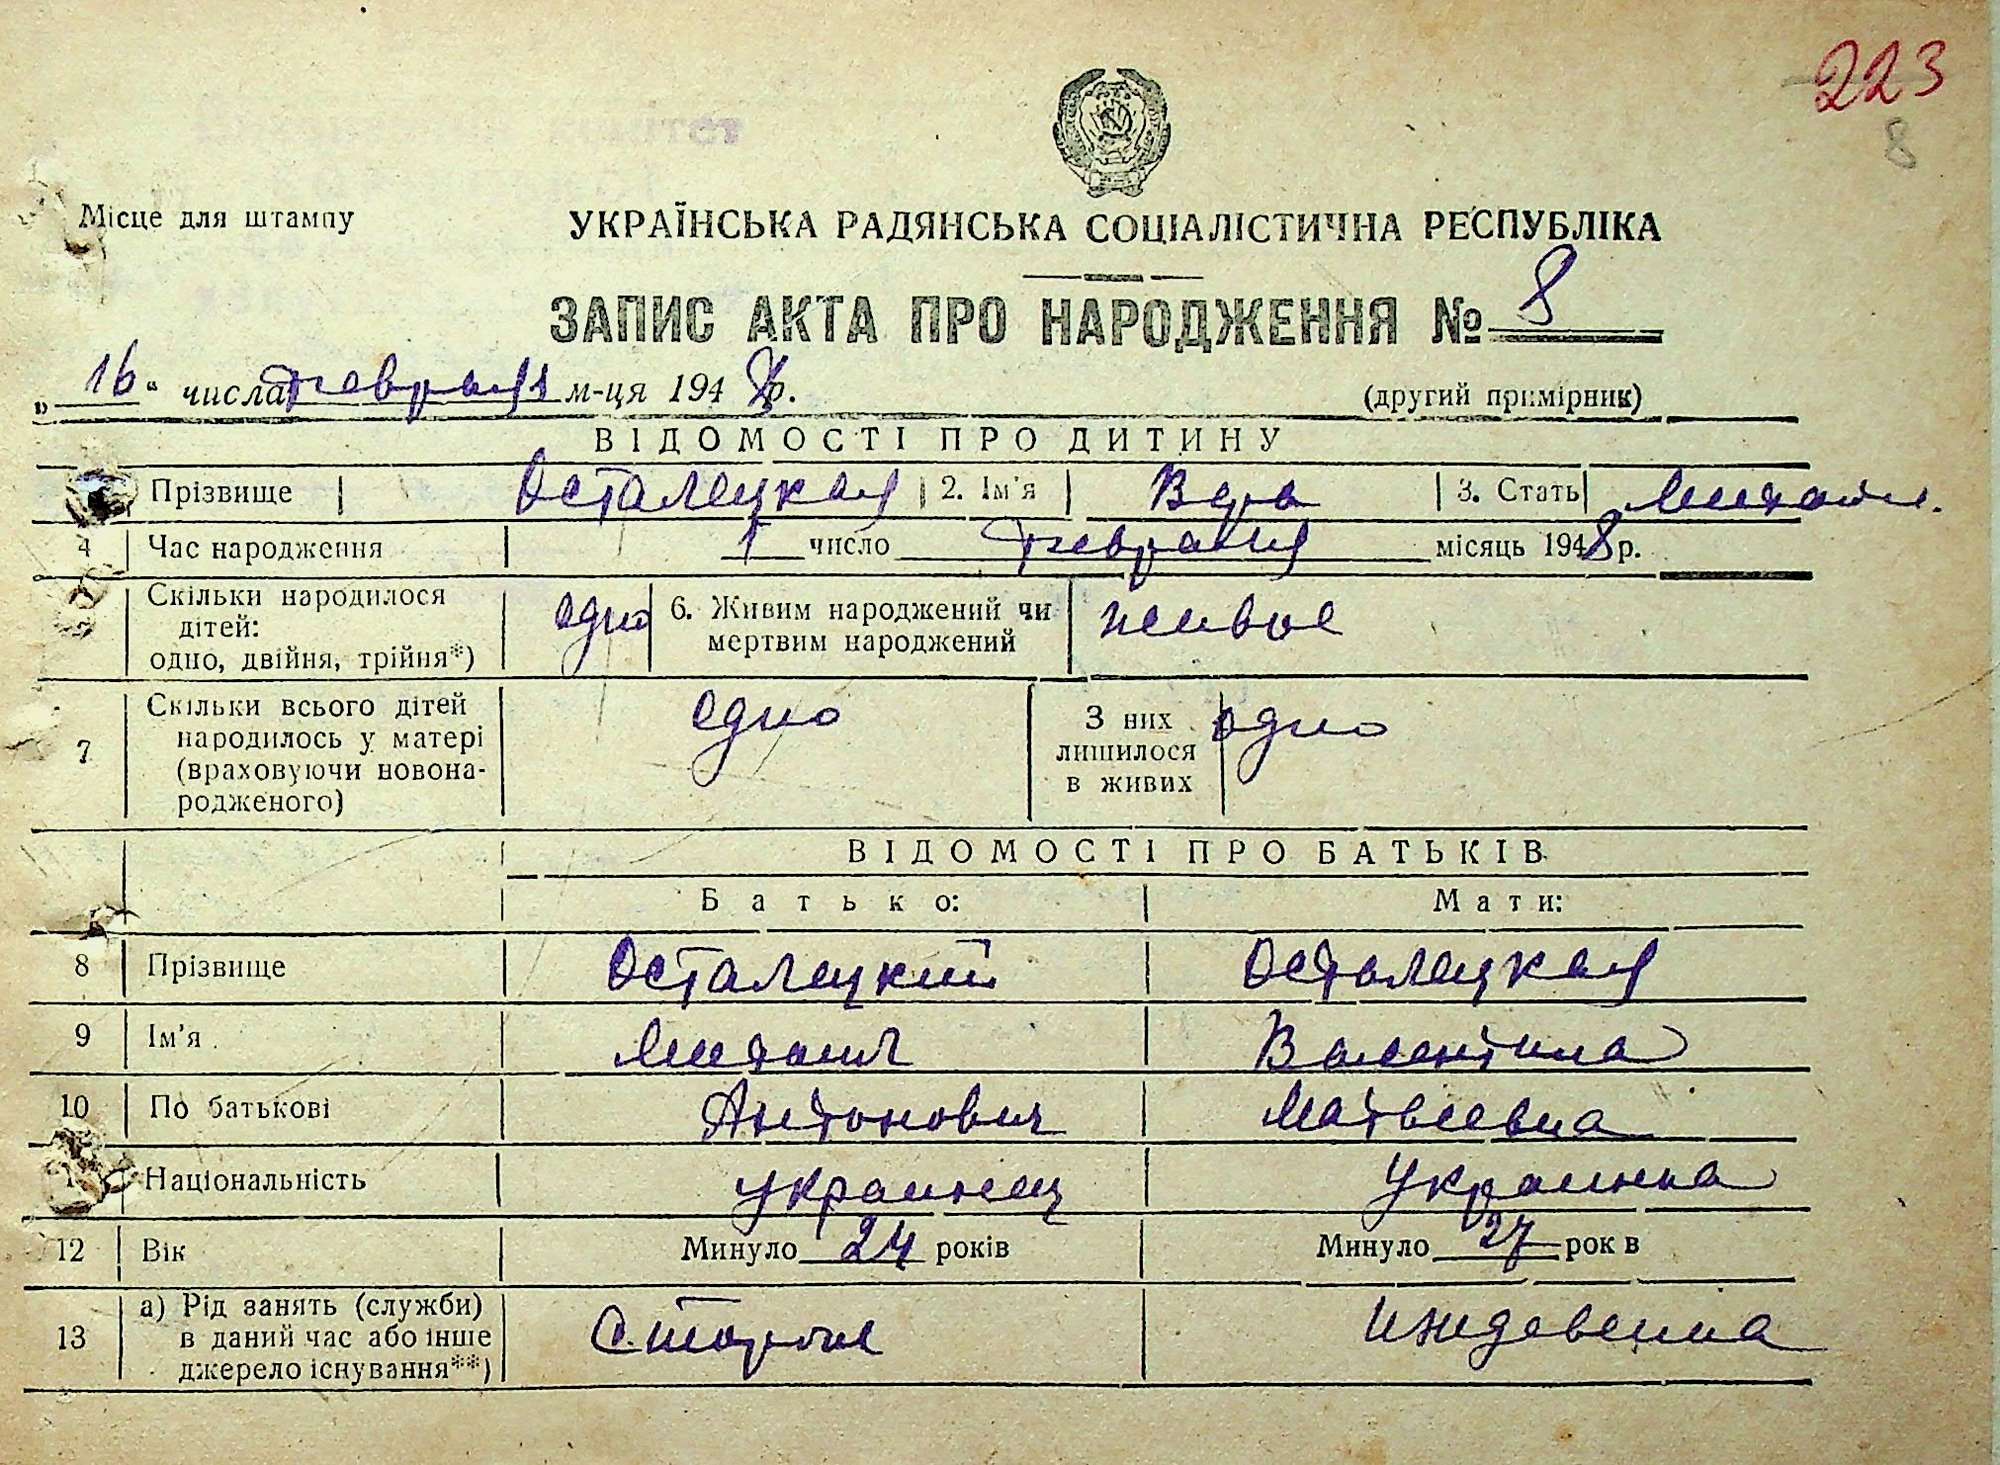 223
8
Місце для штампу
УКРАЇНСЬКА РАДЯНСЬКА СОЦІАЛІСТИЧНА РЕСПУБЛІКА
ЗАПИС АКТА ПРО НАРОДЖЕННЯ № 8
„16“ числа февраля м-ця 1948 р. (другий примірник)
ВІДОМОСТІ ПРО ДИТИНУ
Прізвище Осталецкая 2. Ім'я Вера 3. Стать
4 Час народження 1 число февраля місяць 1948 р.
Скільки народилося дітей: одно, двійня, трійня*) одно 6. Живим народжений чи мертвим народжений живое
7 Скільки всього дітей народилось у матері (враховуючи новонародженого) одно З них лишилося в живих одно
ВІДОМОСТІ ПРО БАТЬКІВ
Батько: Мати:
8 Прізвище Осталецкий Осталецкая
9 Ім'я Михаил Валентина
10 По батькові Антонович Матвеевна
Національність украинец украинка
12 Вік Минуло 24 років Минуло 27 рок в
13 а) Рід занять (служби) в даний час або інше джерело існування**) Иждевенка